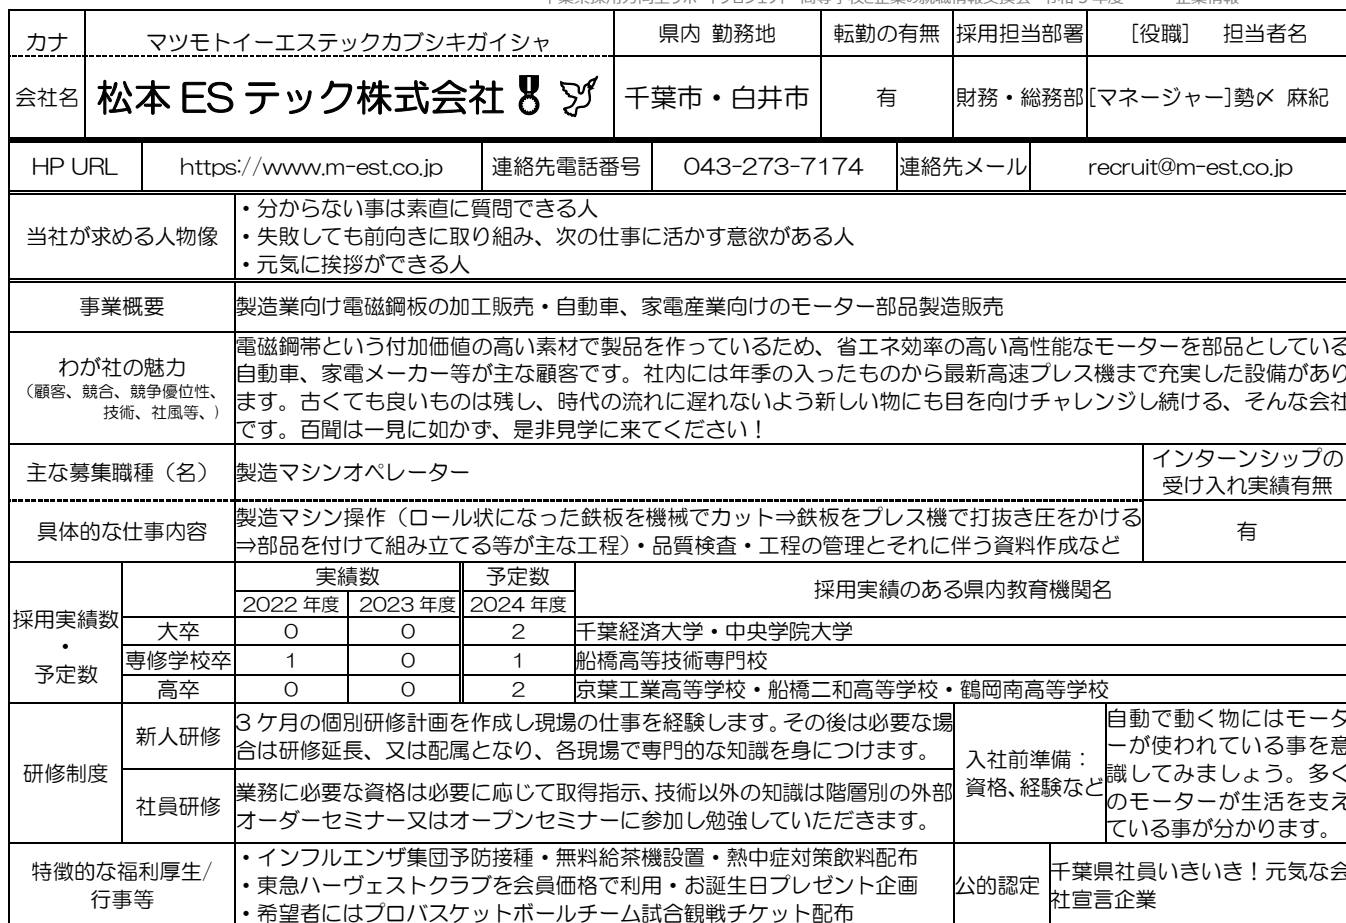 カナ マツモトイーエステックカブシキガイシャ 県内 勤務地 転勤の有無 採用担当部署 [役職] 担当者名
会社名 松本 ES テック株式会社 千葉市・白井市 有 財務・総務部 [マネージャー]勢〆 麻紀
HP URL https://www.m-est.co.jp 連絡先電話番号 043-273-7174 連絡先メール recruit@m-est.co.jp
当社が求める人物像
・分からない事は素直に質問できる人
・失敗しても前向きに取り組み、次の仕事に活かす意欲がある人
・元気に挨拶ができる人
事業概要 製造業向け電磁鋼板の加工販売・自動車、家電産業向けのモーター部品製造販売
わが社の魅力
(顧客、競合、競争優位性、
技術、社風等、)
電磁鋼帯という付加価値の高い素材で製品を作っているため、省エネ効率の高い高性能なモーターを部品としている
自動車、家電メーカー等が主な顧客です。社内には年季の入ったものから最新高速プレス機まで充実した設備があり
ます。古くても良いものは残し、時代の流れに遅れないよう新しい物にも目を向けチャレンジし続ける、そんな会社
です。百聞は一見に如かず、是非見学に来てください!
主な募集職種(名) 製造マシンオペレーター
インターンシップの
受け入れ実績有無
具体的な仕事内容
製造マシン操作(ロール状になった鉄板を機械でカット⇒鉄板をプレス機で打抜き圧をかける
⇒部品を付けて組み立てる等が主な工程)・品質検査・工程の管理とそれに伴う資料作成など
有
採用実績数
・
予定数
実績数 予定数 採用実績のある県内教育機関名
2022 年度 2023 年度 2024 年度
大卒 0 0 2 千葉経済大学・中央学院大学
専修学校卒 1 0 1 船橋高等技術専門校
高卒 0 0 2 京葉工業高等学校・船橋二和高等学校・鶴岡南高等学校
研修制度
新人研修
3 ケ月の個別研修計画を作成し現場の仕事を経験します。その後は必要な場
合は研修延長、又は配属となり、各現場で専門的な知識を身につけます。
社員研修
業務に必要な資格は必要に応じて取得指示、技術以外の知識は階層別の外部
オーダーセミナー又はオープンセミナーに参加し勉強していただきます。
入社前準備:
資格、経験など
自動で動く物にはモータ
ーが使われている事を意
識してみましょう。多く
のモーターが生活を支え
ている事が分かります。
特徴的な福利厚生/
行事等
・インフルエンザ集団予防接種・無料給茶機設置・熱中症対策飲料配布
・東急ハーヴェストクラブを会員価格で利用・お誕生日プレゼント企画
・希望者にはプロバスケットボールチーム試合観戦チケット配布
公的認定
千葉県社員いきいき!元気な会
社宣言企業